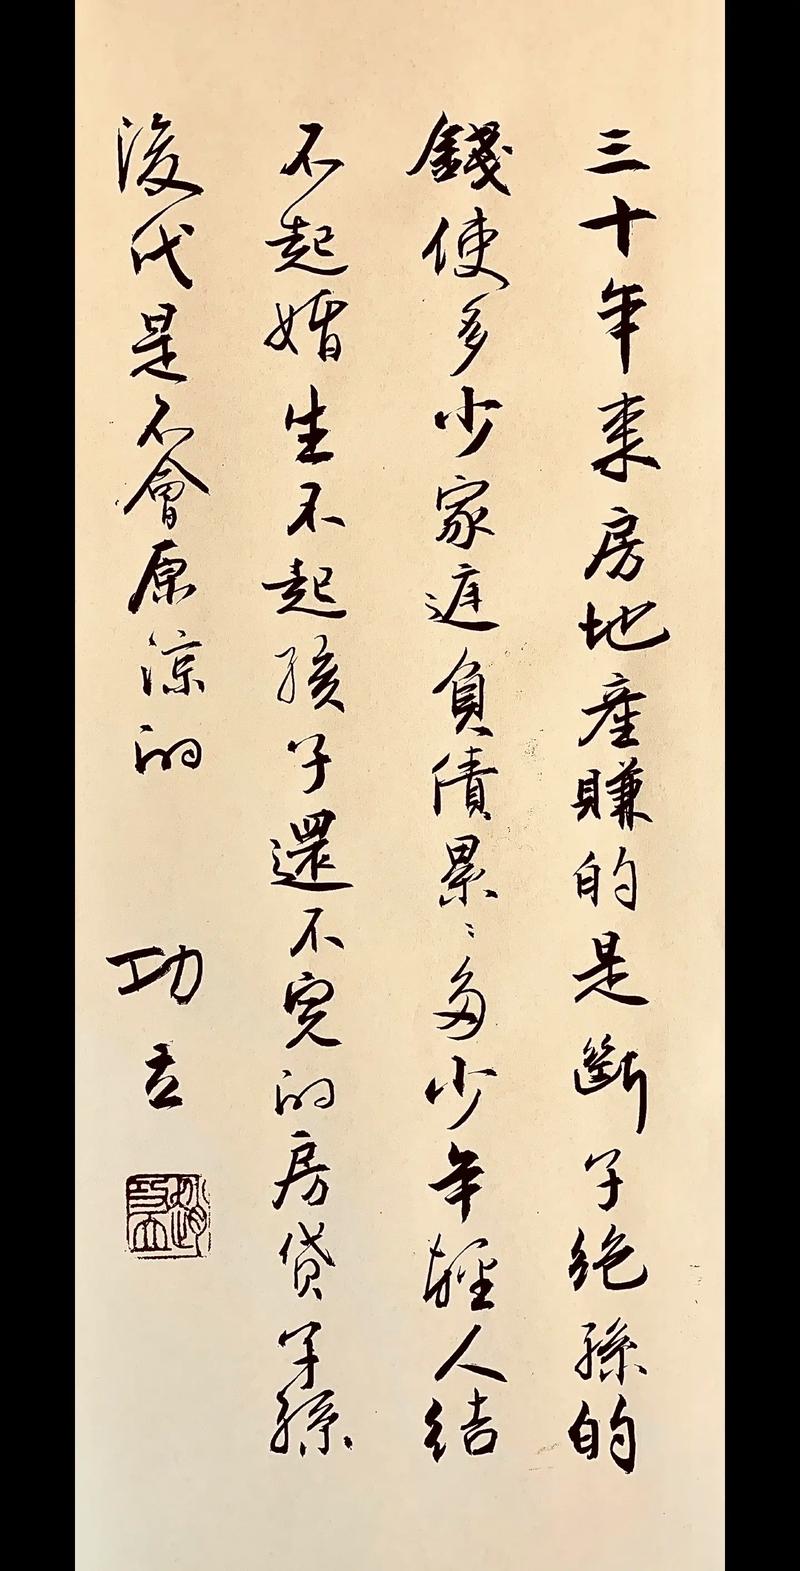 三十年来房地產賺的是斷子绝孫的
錢使多少家庭負债累々多少年輕人结
不起婚生不起孩子還不完的房贷子孫
後代是不會原涼的
功立